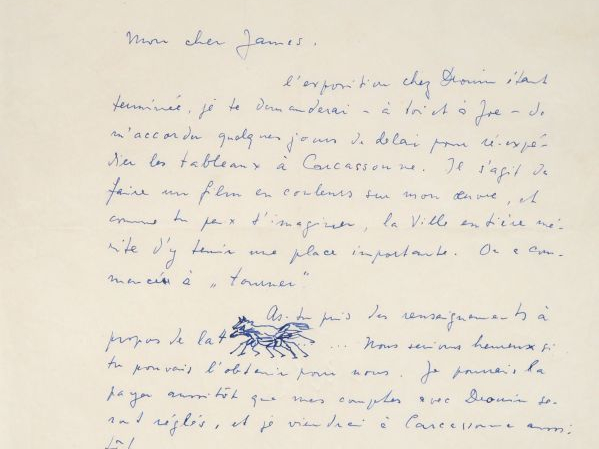 Mon cher James.
l'exposition chez Drouin étant
terminée, je te demanderai – à toi et à Joe – de
m'accorder quelques jours de délai pour ré-expé-
dier les tableaux à Carcassonne. Il s'agit de
faire un film en couleurs sur mon œuvre, et
comme tu peux t'imaginer, la Ville entière mé-
rite d'y tenir une place importante. On a com-
mencé à „tourner"
As-tu pris des renseignements à
propos de la 4 ... Nous serions heureux si
tu pouvais l'obtenir pour nous. Je pourrais la
payer aussitôt que mes comptes avec Drouin se-
ront réglés, et je viendrai à Carcassonne aussi-
tôt